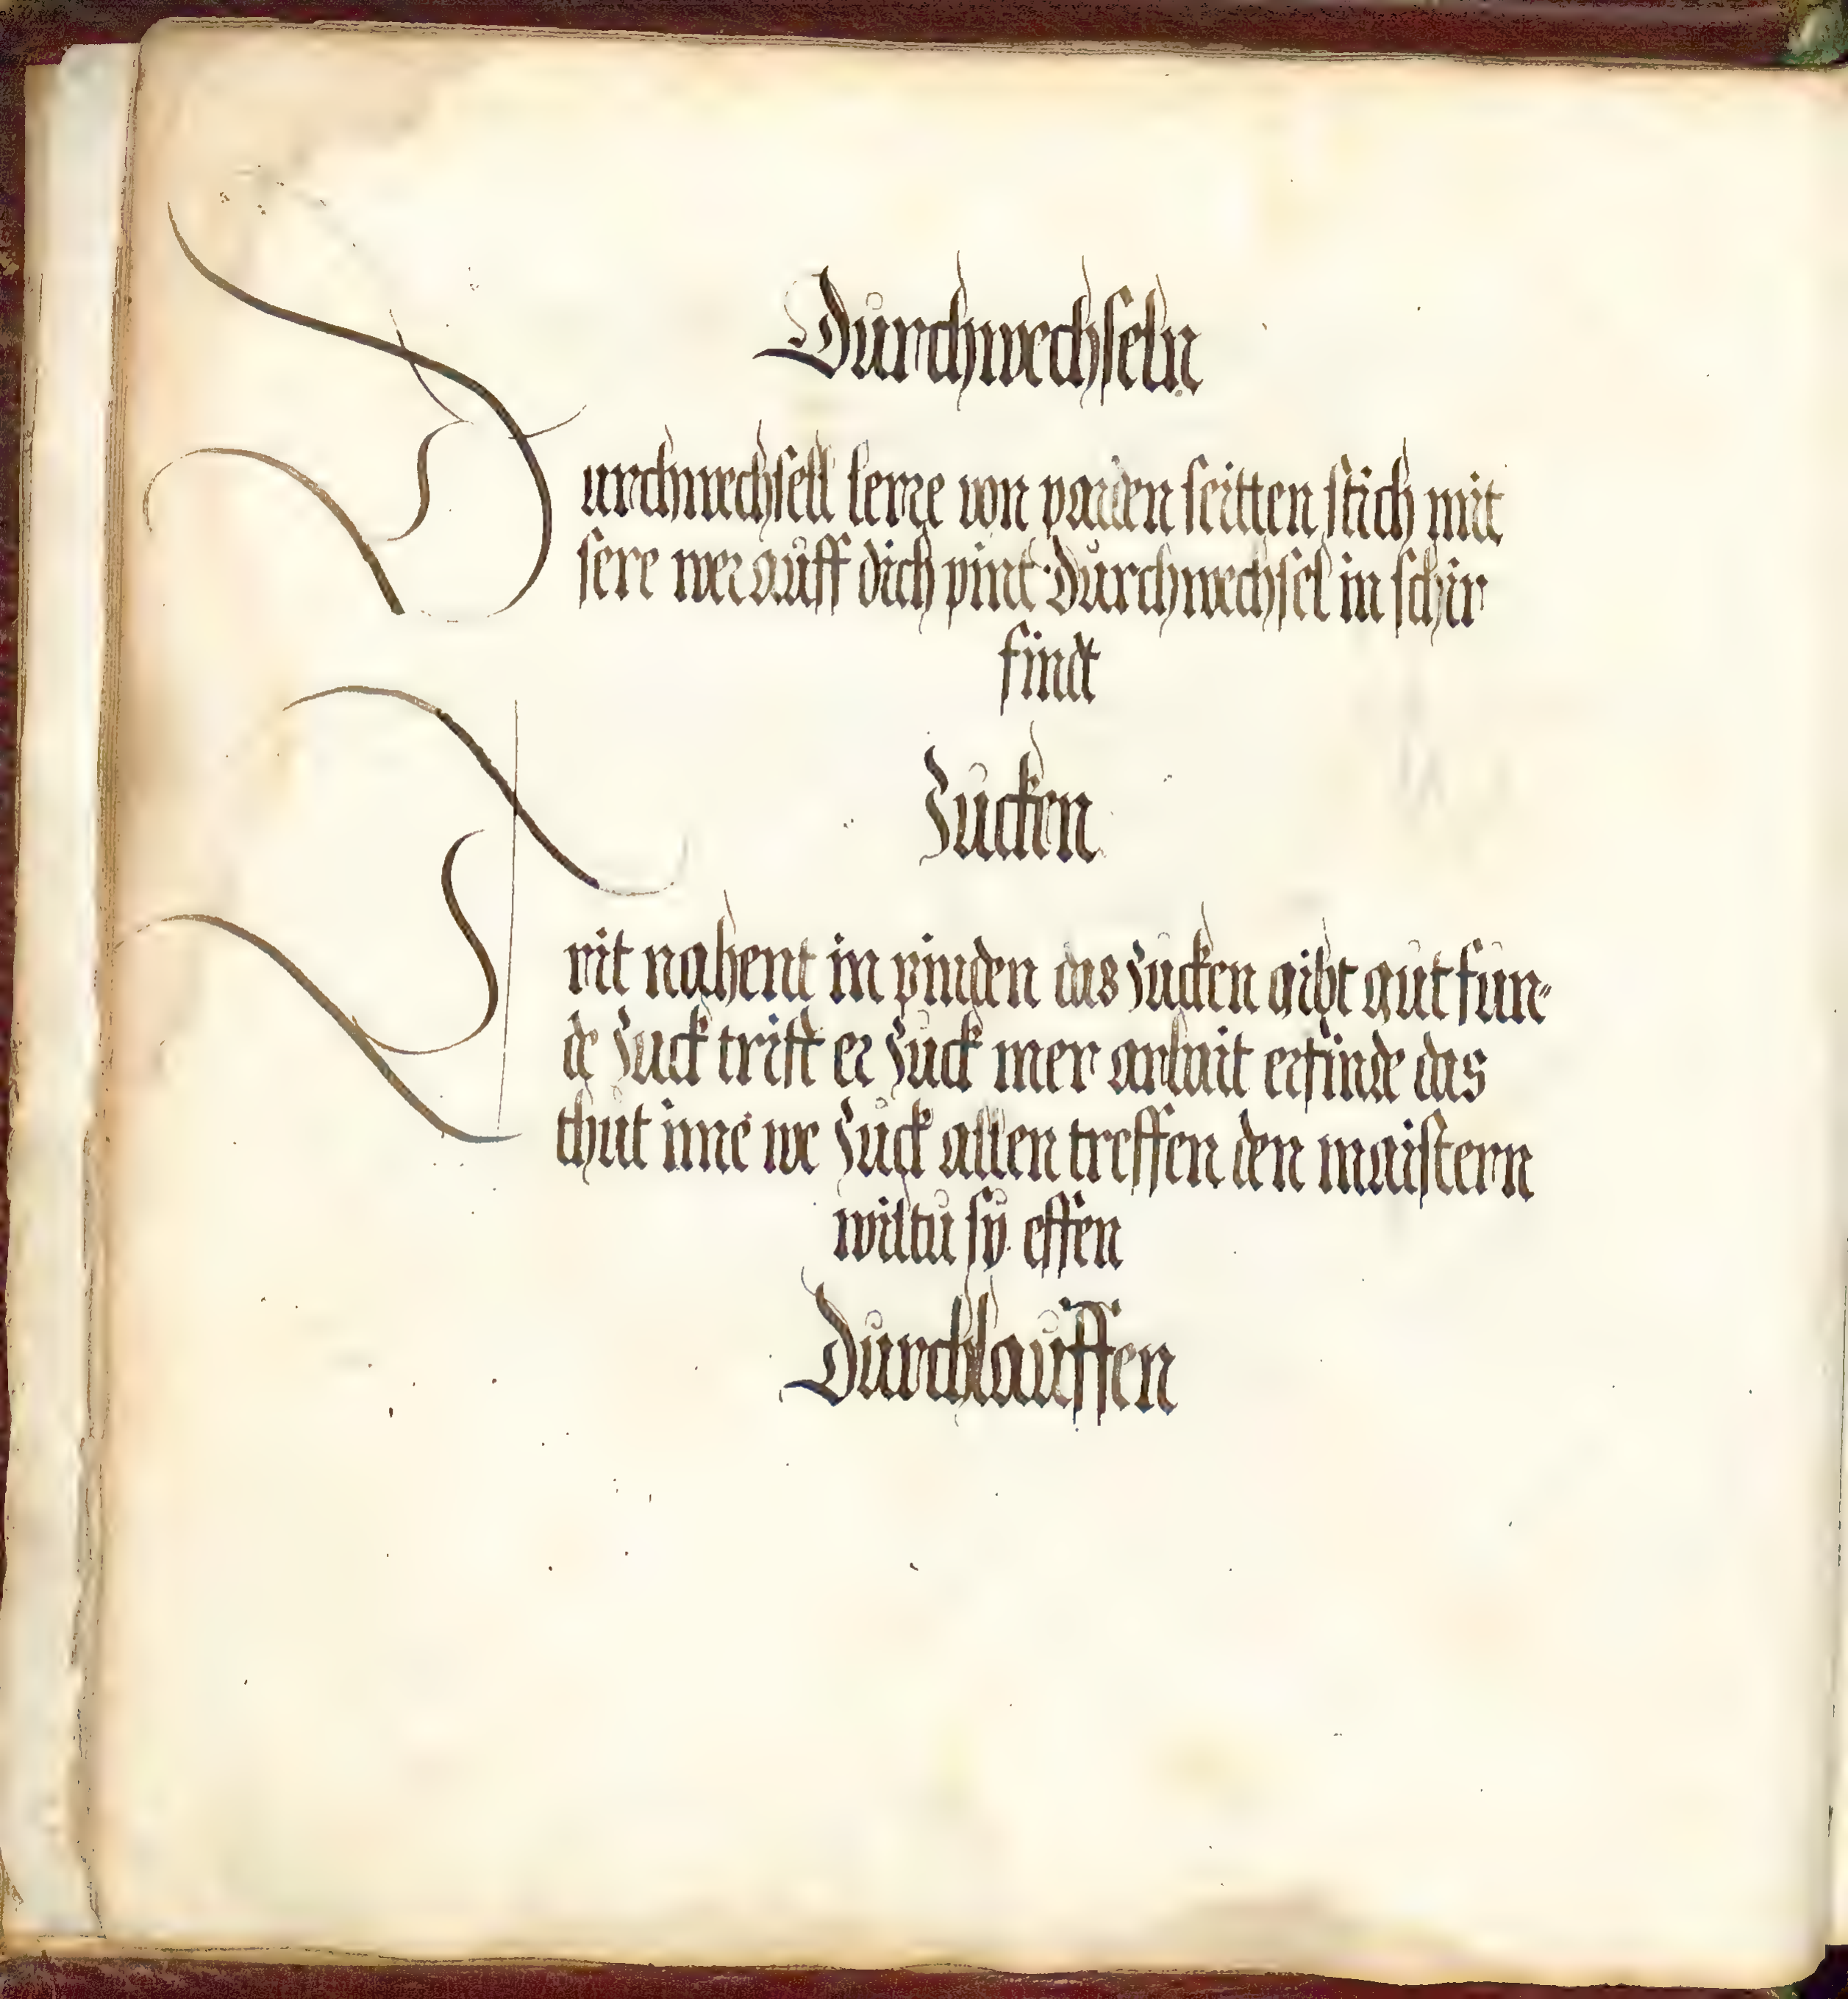 Durchwechseln
Durchwechsell lerre von paiden seitten stich mit
sere wer auff dich pint durchwechsel in schir
findt
Zucken
Trit nahent in pinden das zucken gibt gut fun-
de zuck trifft er zuck mer arbait erfinde das
thut ime we zuck allen treffen den maistern
wiltu sy effen
Durchlauffen